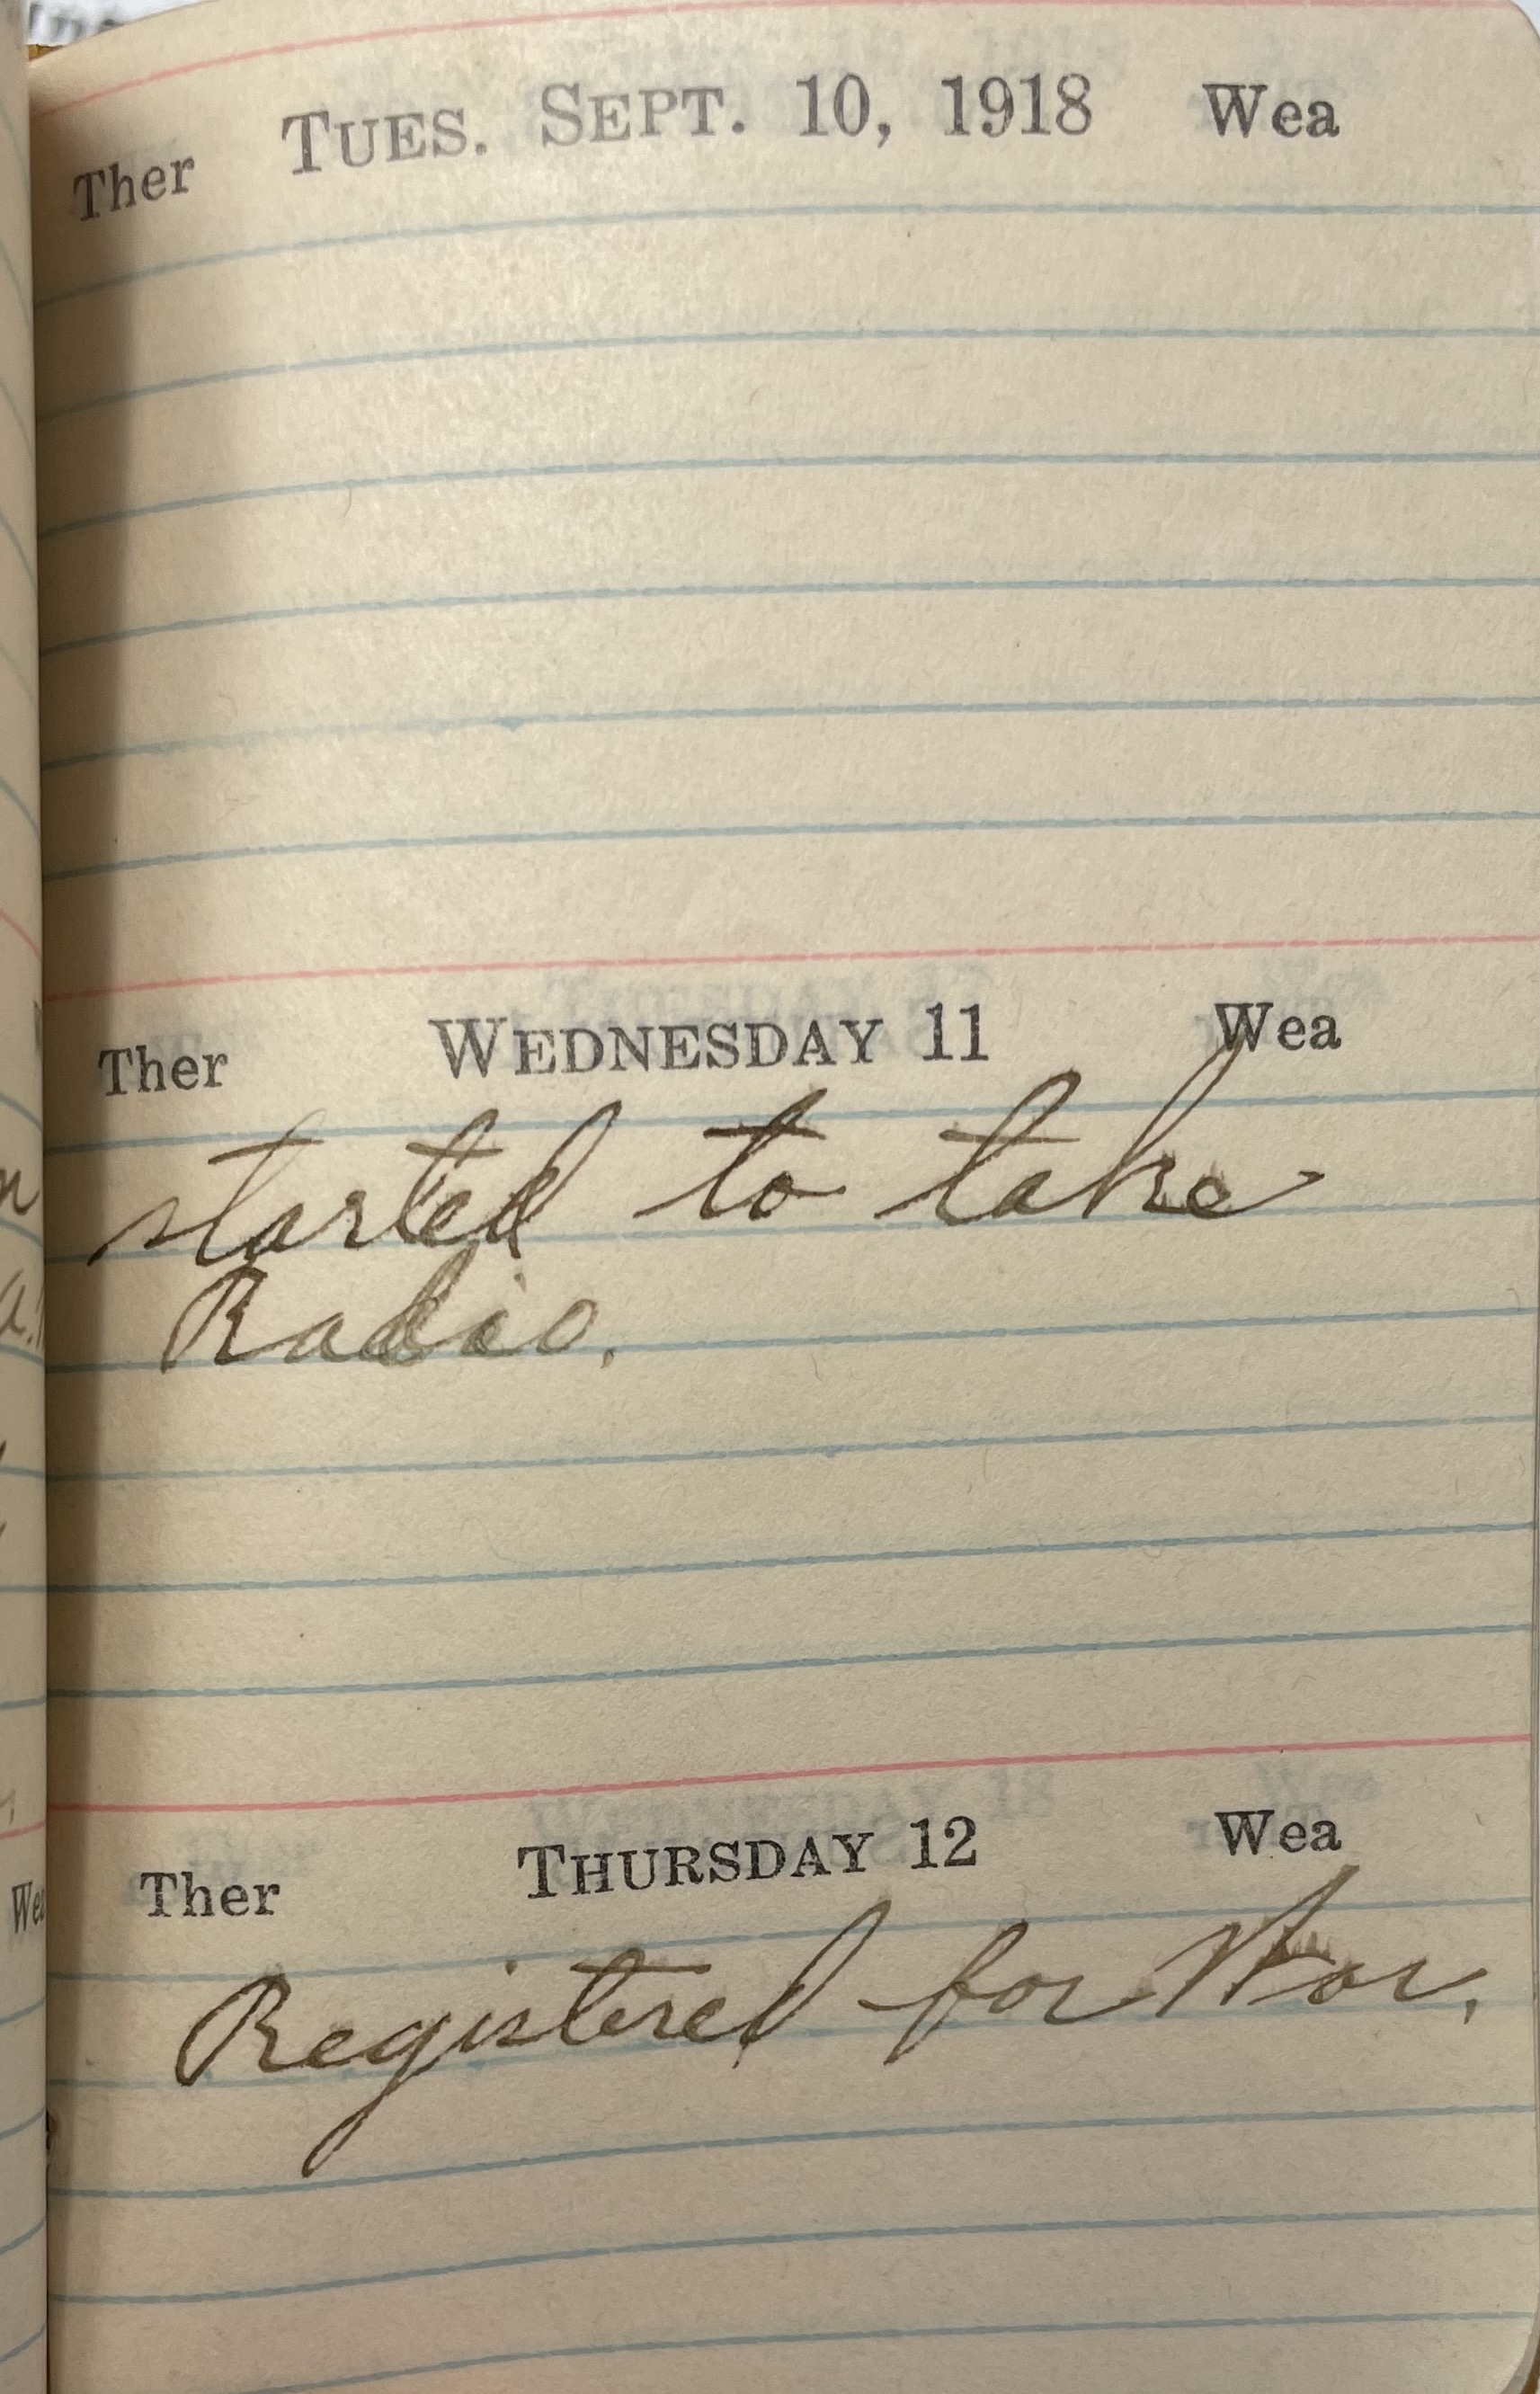 Ther TUES. SEPT. 10, 1918 Wea
Ther WEDNESDAY 11 Wea
started to take
Radio.
Ther THURSDAY 12 Wea
Registered for War.